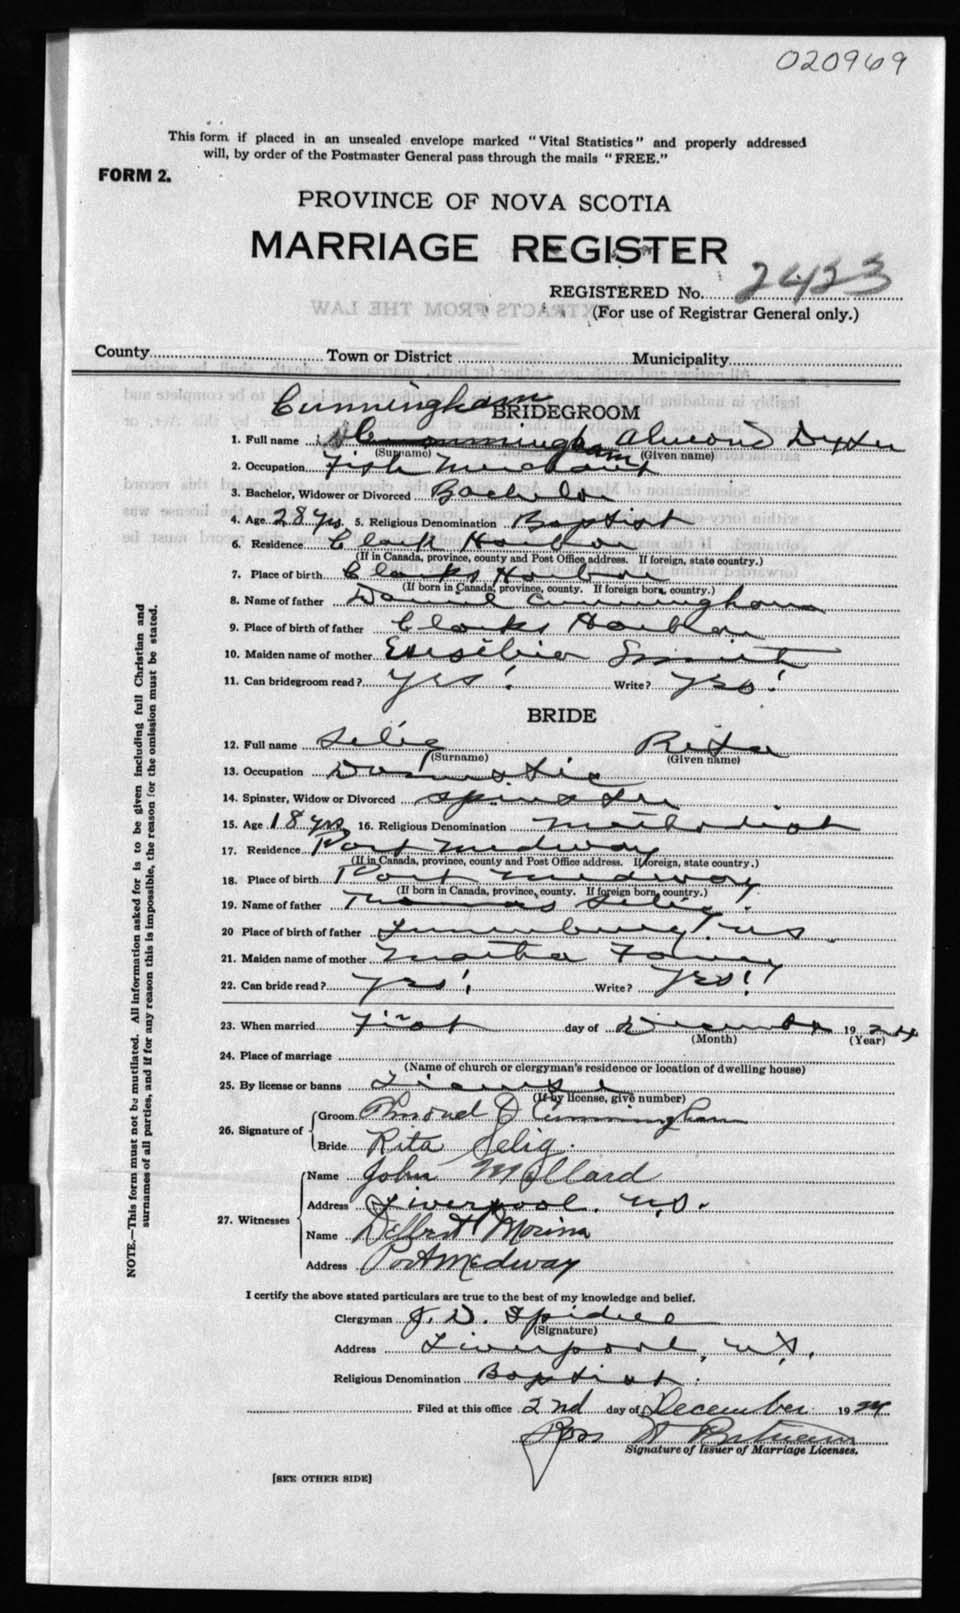 020969
This form if placed in an unsealed envelope marked "Vital Statistics" and properly addressed
will, by order of the Postmaster General pass through the mails "FREE."
FORM 2.
PROVINCE OF NOVA SCOTIA
MARRIAGE REGISTER
REGISTERED No. 2423
(For use of Registrar General only.)
County Town or District Municipality
Cunningham
BRIDEGROOM
1. Full name Cunningham Dexter
(Surname) (Given name)
2. Occupation Fish Merchant
3. Bachelor, Widower or Divorced Bachelor
4. Age 28 yrs. 5. Religious Denomination Baptist
6. Residence Clark Harbor
(If in Canada, province, county and Post Office address. If foreign, state country.)
7. Place of birth Clarks Harbor
(If born in Canada, province, county. If foreign born, country.)
8. Name of father Daniel Cunningham
9. Place of birth of father Clarks Harbor
10. Maiden name of mother Eusebia Smith
11. Can bridegroom read? yes! Write? yes!
BRIDE
12. Full name Selig Rita
(Surname) (Given name)
13. Occupation Domestic
14. Spinster, Widow or Divorced Spinster
15. Age 18 yrs 16. Religious Denomination Methodist
17. Residence Port Medway
(If in Canada, province, county and Post Office address. If foreign, state country.)
18. Place of birth Port Medway
(If born in Canada, province, county. If foreign born, country.)
19. Name of father Thomas Selig
20 Place of birth of father Lunenburg N.S.
21. Maiden name of mother Martha
22. Can bride read? Yes! Write? Yes!
23. When married First day of December 1924
(Month) (Year)
24. Place of marriage
(Name of church or clergyman's residence or location of dwelling house)
25. By license or banns License
(If by license, give number)
26. Signature of
Groom Almond D Cunningham
Bride Rita Selig.
27. Witnesses
Name John Mollard
Address Liverpool. N.S.
Name
Address Port Medway
I certify the above stated particulars are true to the best of my knowledge and belief.
Clergyman J. D. Spidell
(Signature)
Address Liverpool, N.S.
Religious Denomination Baptist.
Filed at this office 2nd day of December 1924
Ross
Signature of Issuer of Marriage Licenses.
[SEE OTHER SIDE]
NOTE.—This form must not be mutilated. All information asked for is to be given including full Christian and
surnames of all parties, and if for any reason this is impossible, the reason for the omission must be stated.